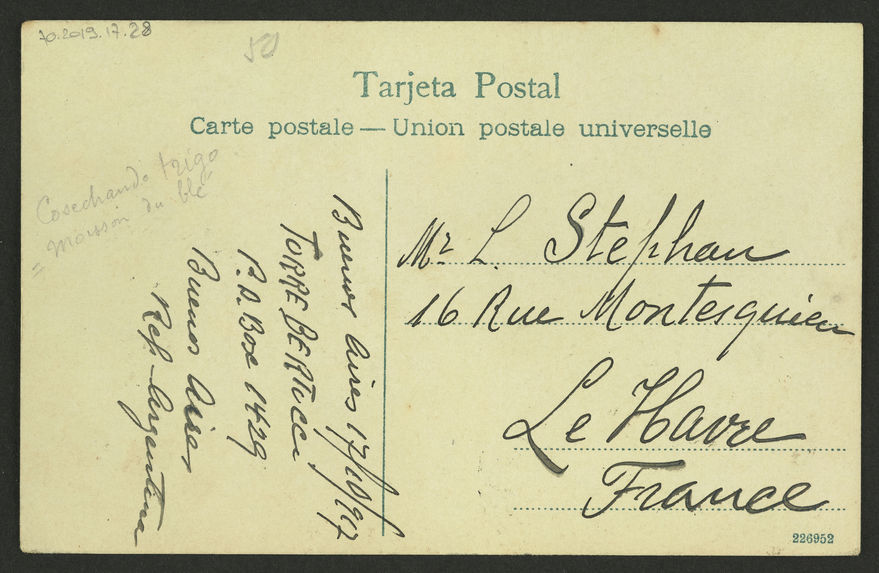 70.2019.17.28
50
Tarjeta Postal
Carte postale — Union postale universelle
Cosechando trigo
= moisson du blé
Buenos Aires 17/10/917
TORRE BERTUCCI
P.O. Box 1429
Buenos Aires
Rep. Argentina
Mr L. Stephan
16 Rue Montesquieu
Le Havre
France
226952